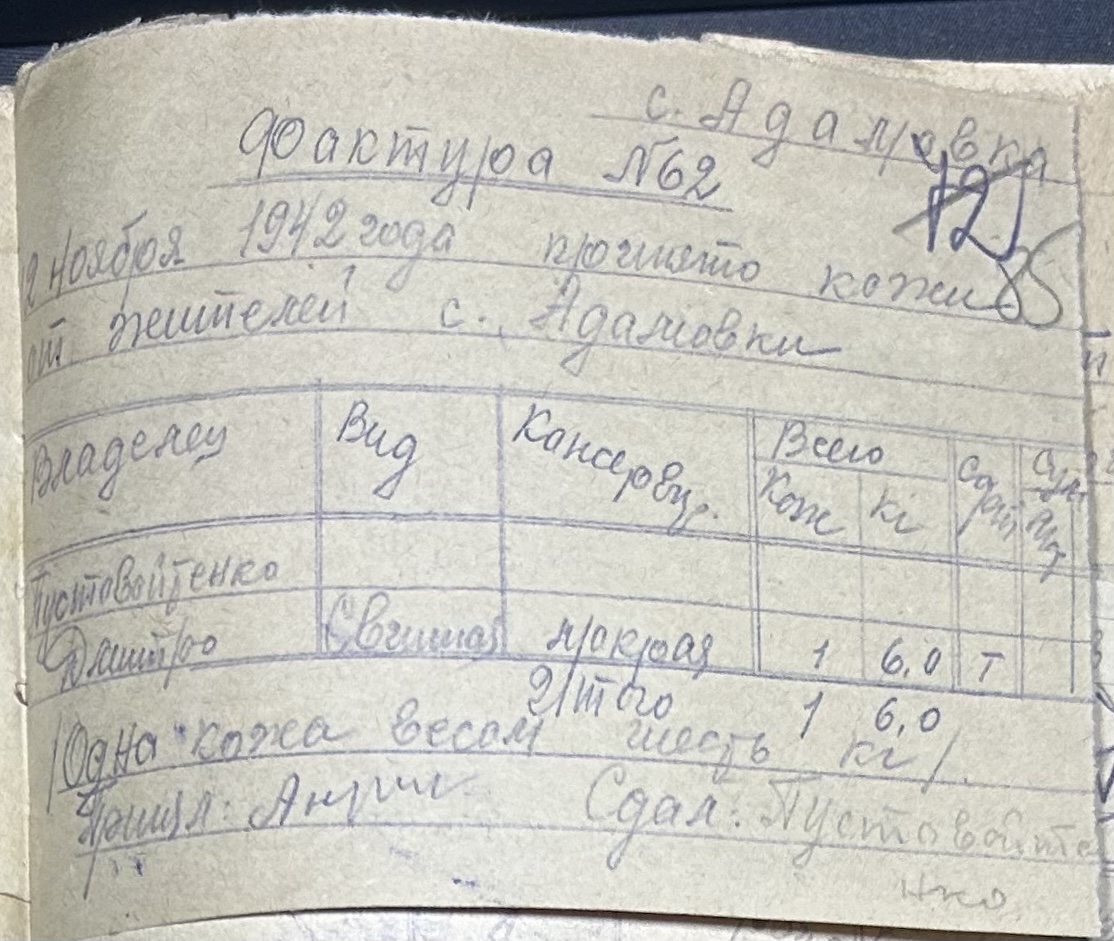 с. Адамовка
Фактура №62
125
85
2 ноября 1942 года принято кожи
от жителей с. Адамовки
Владелец Вид Консервир. Всего Сорт
Кож Кг
Пустовойтенко
Дмитро Свинная мокрая 1 6,0 Т
Итого 1 6,0
/Одна кожа весом шесть кг/.
Принял: Сдал: Пустовойте
нко